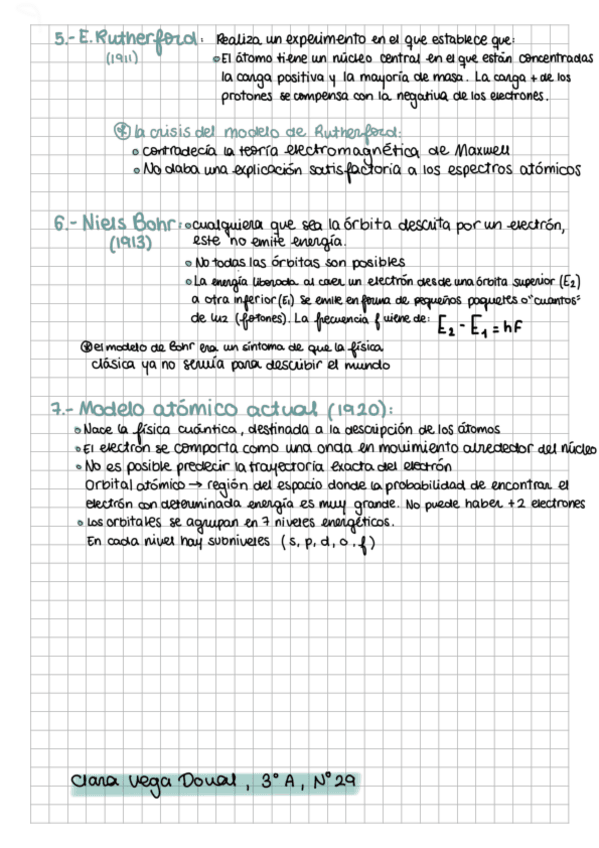 5.- E. Rutherford: Realiza un experimento en el que establece que:
(1911) El átomo tiene un núcleo central en el que están concentradas
la carga positiva y la mayoría de masa. La carga + de los
protones se compensa con la negativa de los electrones.
la crisis del modelo de Rutherford:
contradecía la teoría electromagnética de Maxwell
No daba una explicación satisfactoria a los espectros atómicos
6.- Niels Bohr: cualquiera que sea la órbita descrita por un electrón,
(1913) este no emite energía.
No todas las órbitas son posibles
La energía liberada al caer un electrón desde una órbita superior (E2)
a otra inferior (E1) se emite en forma de pequeños paquetes o "cuantos"
de luz (fotones). La frecuencia f viene de: E2 - E1 = hf
el modelo de Bohr era un síntoma de que la física
clásica ya no servía para describir el mundo
7.- Modelo atómico actual (1920):
Nace la física cuántica, destinada a la descripción de los átomos
El electrón se comporta como una onda en movimiento alrededor del núcleo
No es posible predecir la trayectoria exacta del electrón
Orbital atómico → región del espacio donde la probabilidad de encontrar el
electrón con determinada energía es muy grande. No puede haber +2 electrones
Los orbitales se agrupan en 7 niveles energéticos.
En cada nivel hay subniveles (s, p, d, o . f)
Clara Vega Doval, 3º A, Nº 29